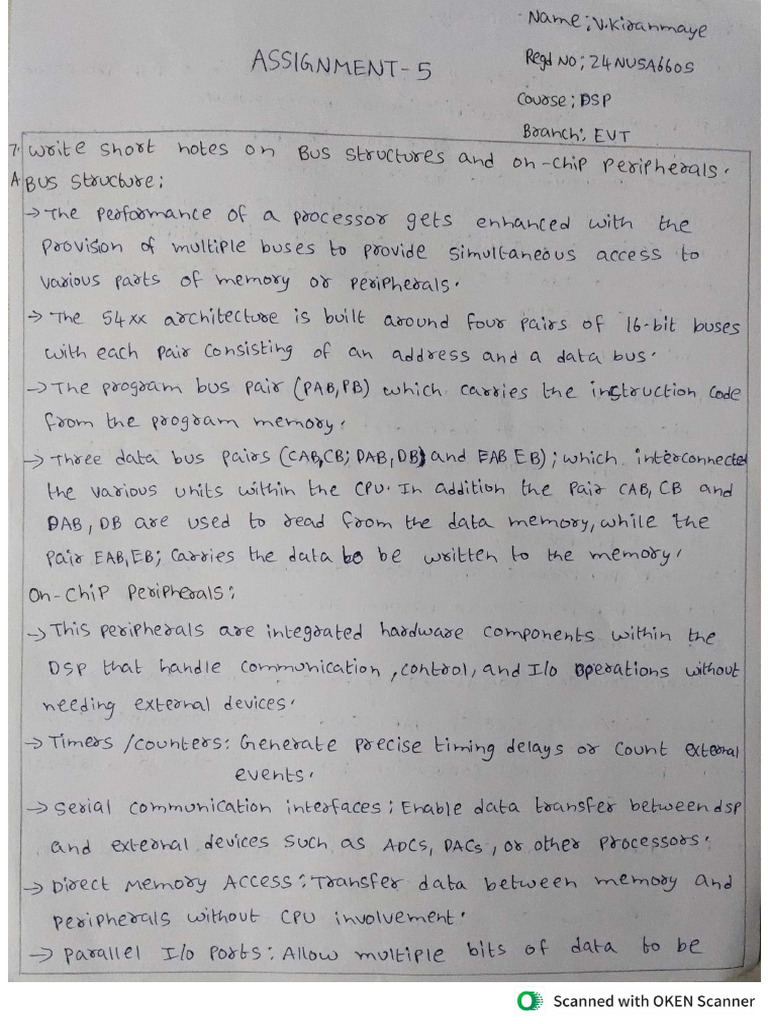 Name: V.Kiranmaye
ASSIGNMENT-5
Regd No: 24NU5A6605
Course: DSP
Branch: EVT
7. Write short notes on Bus structures and on-chip peripherals.
A Bus structure:
→ The performance of a processor gets enhanced with the
provision of multiple buses to provide simultaneous access to
various parts of memory or peripherals.
→ The 54xx architecture is built around four pairs of 16-bit buses
with each pair consisting of an address and a data bus.
→ The program bus pair (PAB, PB) which carries the instruction code
from the program memory.
→ Three data bus pairs (CAB,CB; DAB, DB) and EAB EB); which interconnected
the various units within the CPU. In addition the pair CAB, CB and
DAB, DB are used to read from the data memory, while the
pair EAB, EB; carries the data to be written to the memory.
On-Chip Peripherals:
→ This peripherals are integrated hardware components within the
DSP that handle communication, control, and I/o operations without
needing external devices.
→ Timers /counters: Generate precise timing delays or count external
events.
→ serial communication interfaces: Enable data transfer between dsp
and external devices such as ADCs, DACs, or other processors.
→ Direct Memory Access: Transfer data between memory and
peripherals without CPU involvement.
→ parallel I/o ports: Allow multiple bits of data to be
Scanned with OKEN Scanner